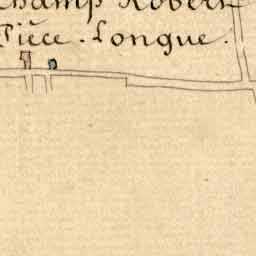 Champ Robert
Pièce. Longue.